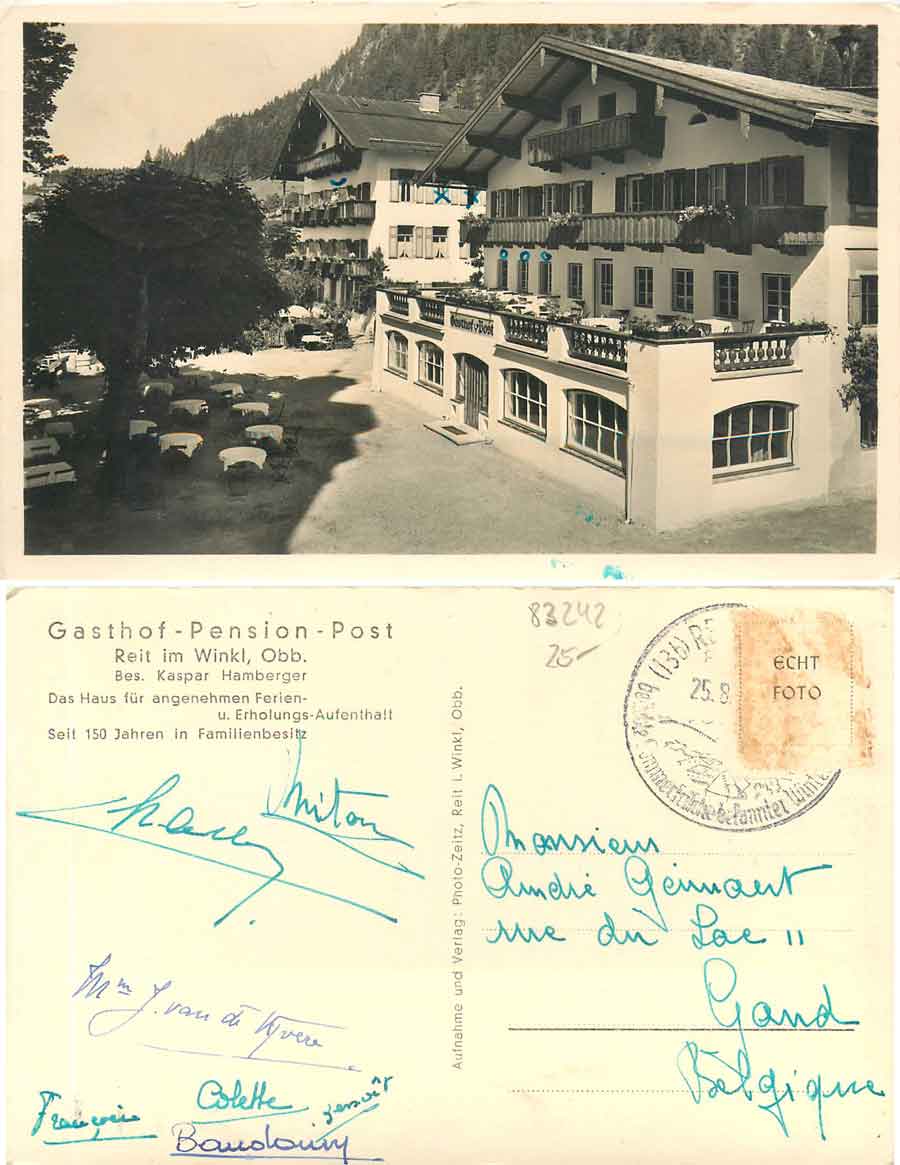 Gasthof Post
Gasthof-Pension-Post
Reit im Winkl, Obb.
Bes. Kaspar Hamberger
Das Haus für angenehmen Ferien-
u. Erholungs-Aufenthalt
Seit 150 Jahren in Familienbesitz
83242
25-
(13b) RE
25.8
ECHT
FOTO
Aufnahme und Verlag: Photo-Zeitz, Reit i. Winkl, Obb.
Monsieur
André
rue du Lac 11
Gand
Belgique
Miton
Mm J. van de Vyvere
Colette